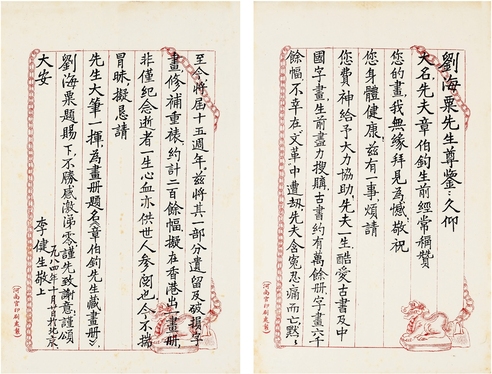 劉海粟先生尊鑒：久仰
大名，先夫章伯鈞生前經常稱贊
您的畫，我無緣拜見為憾，敬祝
您身體健康，茲有一事，煩請
您費神給予大力協助，先夫一生酷愛古書及中
國字畫，生前盡力搜購，古書約有萬餘册，字畫六千
餘幅，不幸在文革中遭劫，先夫含冤忍痛而亡，默默
至今將屆十五週年，茲將其一部分遺留及破損字
畫，修補重裱，約計二百餘幅，擬在香港出一畫册，
非僅紀念逝者一生心血，亦供世人參閱也，今不揣
冒昧，擬懇請
先生大筆一揮，為畫册題名《章伯鈞先生藏畫册》，
劉海粟題賜下，不勝感激涕零，謹先致謝意，謹頌
大安
一九八四年十月廿日於北京
李健生敬上